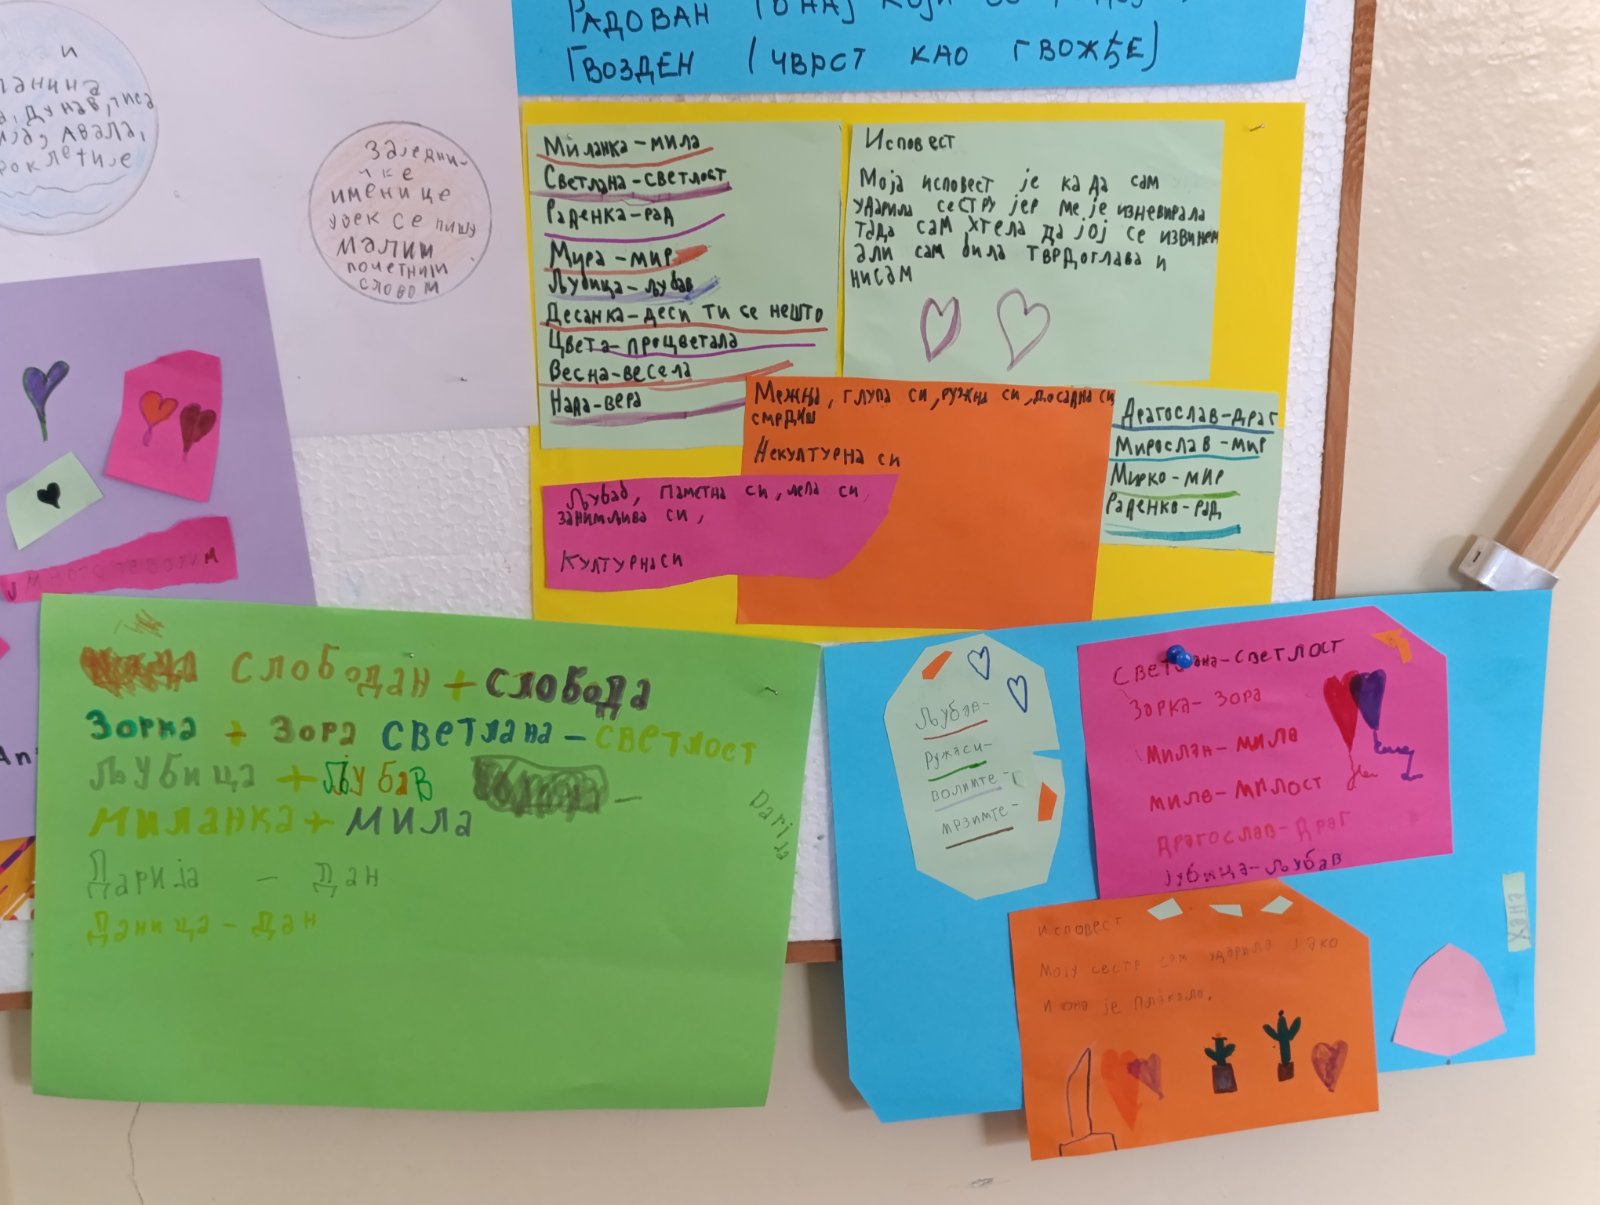 РАДОВАН
ГВОЗДЕН (ЧВРСТ КАО ГВОЖЂЕ)
и
ланина
Дунав, Тиса
Авала,
Заједни-
чке
именице
увек се пишу
малим
почетним
словом
Миланка-мила
Светлана-светлост
Раденка-рад
Мира-мир
Љубица-љубав
Десанка-деси ти се нешто
Цвета-процветала
Весна-весела
Нада-вера
Исповест
Моја исповест је када сам
ударила сестру јер ме је изневирала
тада сам хтела да јој се извинем
али сам била тврдоглава и
нисам
Мржња, глупа си, ружна си, досадна си
смрдиш
Некултурна си
Љубав, паметна си, лепа си,
занимљива си,
Културна си
Драгослав-драг
Мирослав-мир
Мирко-мир
Раденко-рад
Слободан + слобода
Зорка + Зора Светлана-светлост
Љубица + љубав
Миланка + мила
Дарија - Дан
Даница - дан
Darija
Љубав-
Ружаси-
волимте-
мрзимте-
Светлана-светлост
Зорка-Зора
Милан-миле
миле-милост
Драгослав-драг
јубица-љубав
исповест
Моју сестр сам ударила јако
и она је плакала.
Хана